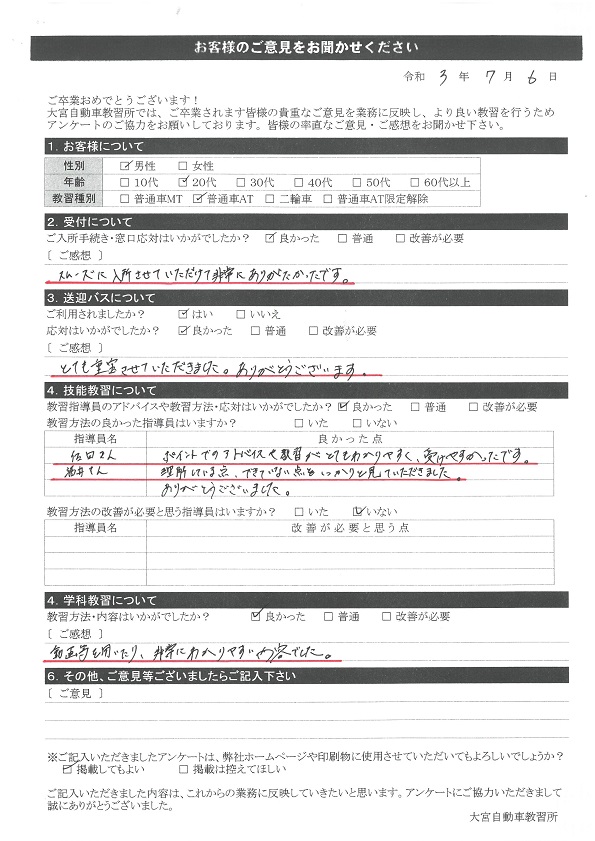 お客様のご意見をお聞かせください
令和 3 年 7 月 6 日
ご卒業おめでとうございます！
大宮自動車教習所では、ご卒業されます皆様の貴重なご意見を業務に反映し、より良い教習を行うため
アンケートのご協力をお願いしております。皆様の率直なご意見・ご感想をお聞かせ下さい。
1. お客様について
性別 ☑男性 □女性
年齢 □10代 ☑20代 □30代 □40代 □50代 □60代以上
教習種別 □普通車MT ☑普通車AT □二輪車 □普通車AT限定解除
2. 受付について
ご入所手続き・窓口応対はいかがでしたか？ ☑良かった □普通 □改善が必要
〔 ご感想 〕
スムーズに入所させていただけて非常にありがたかったです。
3. 送迎バスについて
ご利用されましたか？ ☑はい □いいえ
応対はいかがでしたか？ ☑良かった □普通 □改善が必要
〔 ご感想 〕
とても重宝させていただきました。ありがとうございます。
4. 技能教習について
教習指導員のアドバイスや教習方法・応対はいかがでしたか？ ☑良かった □普通 □改善が必要
教習方法の良かった指導員はいますか？ □いた □いない
指導員名 良かった点
さん ポイントでのアドバイスや教習がとてもわかりやすく、受けやすかったです。
さん 理解している点、できていない点をしっかりと見ていただきました。
ありがとうございました。
教習方法の改善が必要と思う指導員はいますか？ □いた ☑いない
指導員名 改善が必要と思う点
4. 学科教習について
教習方法・内容はいかがでしたか？ ☑良かった □普通 □改善が必要
〔 ご感想 〕
動画等を用いたり、非常にわかりやすい内容でした。
6. その他、ご意見等ございましたらご記入下さい
〔 ご意見 〕
※ご記入いただきましたアンケートは、弊社ホームページや印刷物に使用させていただいてもよろしいでしょうか？
☑掲載してもよい □掲載は控えてほしい
ご記入いただきました内容は、これからの業務に反映していきたいと思います。アンケートにご協力いただきまして
誠にありがとうございました。
大宮自動車教習所